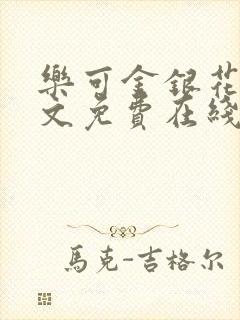 樂可金銀花
文免費在綫
馬克-吉格尔